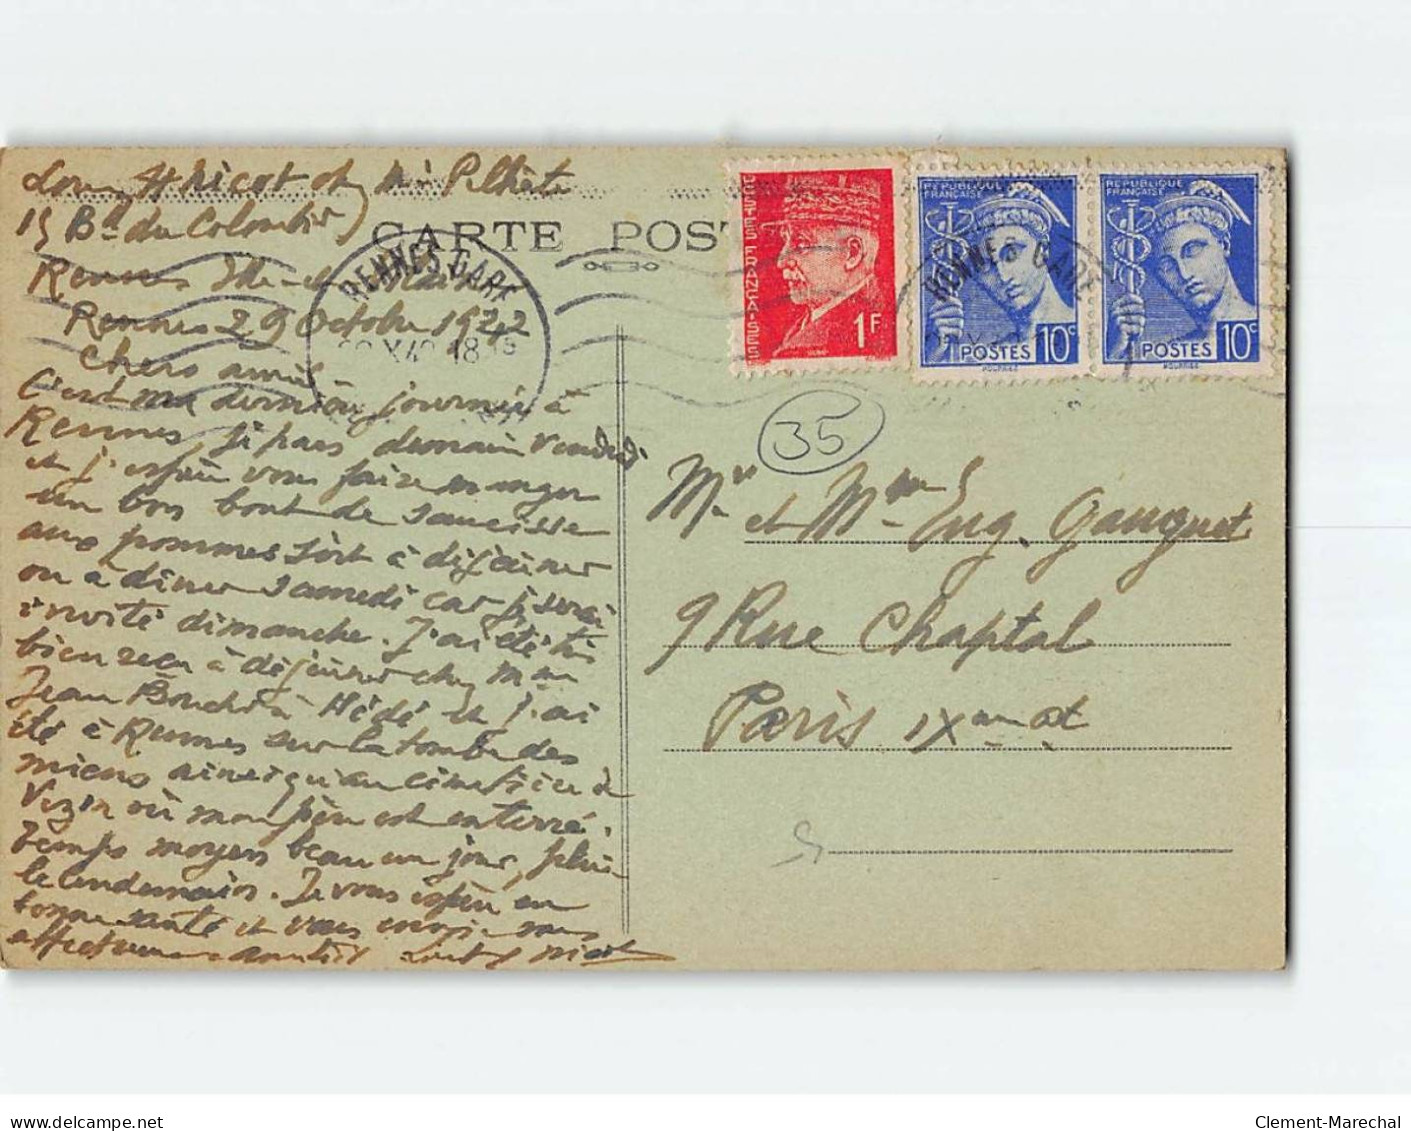 Nicot
15 Bd du Colombier
CARTE POST
Rennes Ille-et-
RENNES GARE
Rennes 29 Octobre 1942
18
chers amis
C'est ma dernière journée à
Rennes je pars demain vendredi
et j'espère vous faire manger
un bon bout de saucisse
aux pommes soit à déjeuner
ou à diner samedi car je serai
invité dimanche. J'ai été très
bien reçu à déjeuner chez Mme
Jean à Hédé et j'ai
été à Rennes sur la tombe des
miens ainsi qu'au cimetière de
Vezin où mon père est enterré.
Temps moyen beau un jour, pluie
le lendemain. Je vous espère en
bonne santé et vous envoie mes
affectueuses amitiés Nicot
POSTES FRANÇAISES
1F
REPUBLIQUE
FRANÇAISE
POSTES 10c
RENNES GARE
REPUBLIQUE
FRANÇAISE
POSTES 10c
35
Mr et Mme Eug. Gauguet
9 Rue Chaptal
Paris IXme
Clement-Marechal
www.delcampe.net